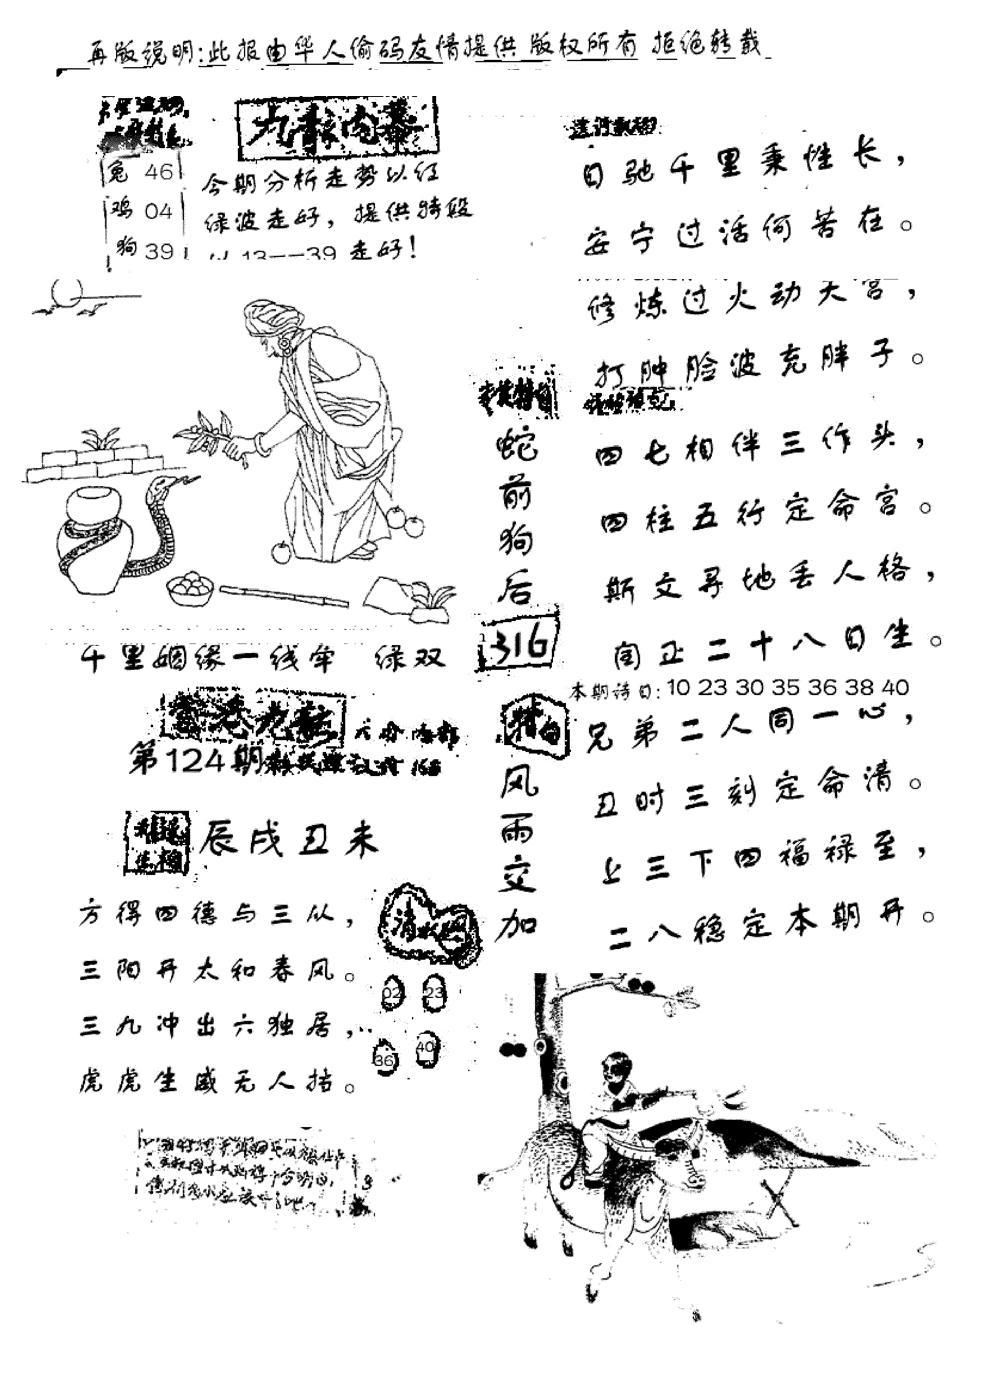 再版说明:此报由华人偷码友情提供 版权所有 拒绝转载
九龍内幕
兔 46
鸡 04
狗 39
今期分析走势以红
绿波走好，提供特段
以 13——39 走好！
日驰千里秉性长，
安宁过活何苦在。
修炼过火动大宫，
打肿脸波充胖子。
蛇前狗后
316
四七相伴三作头，
四柱五行定命宫。
斯文寻地丢人格，
闰正二十八日生。
本期诗日: 10 23 30 35 36 38 40
千里姻缘一线牵 绿双
香港九龍
第124期
特白
风雨交加
兄弟二人同一心，
丑时三刻定命清。
上三下四福禄至，
二八稳定本期开。
辰戌丑未
方得四德与三从，
三阳开太和春风。
三九冲出六独居，
虎虎生威无人挡。
02 23
36 40